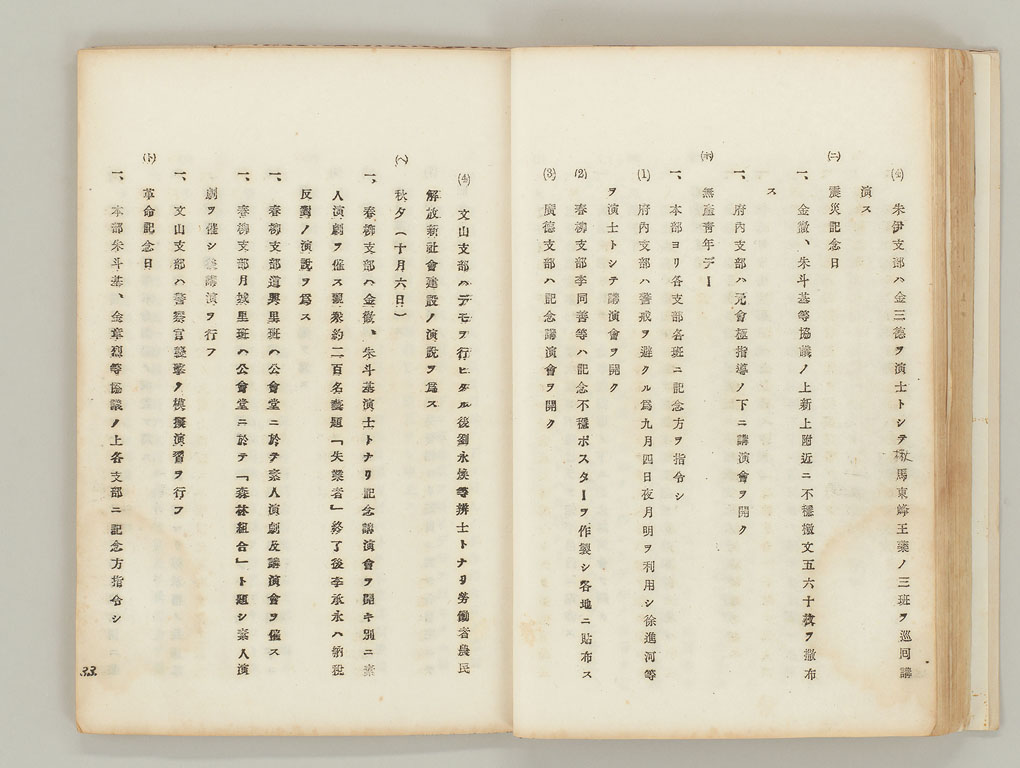 (4) 朱伊支部ハ金三德ヲ演士トシテ馬東峰王藥ノ三班ヲ巡囘講
演ス
(ニ) 震災記念日
一、金徹、朱斗基等協議ノ上新上附近ニ不穩檄文五六十枚ヲ撒布
ス
一、府內支部ハ元會極指導ノ下ニ講演會ヲ開ク
(ホ) 無產靑年デー
一、本部ヨリ各支部各班ニ記念方ヲ指令シ
(1) 府內支部ハ警戒ヲ避クル爲九月四日夜月明ヲ利用シ徐進河等
ヲ演士トシテ講演會ヲ開ク
(2) 春柳支部李同善等ハ記念不穩ポスターヲ作製シ各地ニ貼布ス
(3) 廣德支部ハ記念講演會ヲ開ク
(4) 文山支部ハデモヲ行ヒタル後劉永煥等辨士トナリ勞働者農民
解放新社會建設ノ演說ヲ爲ス
(ヘ) 秋夕(十月六日)
一、春柳支部ハ金徹、朱斗基演士トナリ記念講演會ヲ開キ別ニ素
人演劇ヲ催ス聽衆約二百名藝題「失業者」終了後李承永ハ納稅
反對ノ演說ヲ爲ス
一、春柳支部道興里班ハ公會堂ニ於テ素人演劇及講演會ヲ催ス
一、春柳支部月城里班ハ公會堂ニ於テ「森林組合」ト題シ素人演
劇ヲ催シ後講演ヲ行フ
一、文山支部ハ警察官襲擊ノ模擬演習ヲ行フ
(ト) 革命記念日
一、本部朱斗基、金章烈等協議ノ上各支部ニ記念方指令シ
33